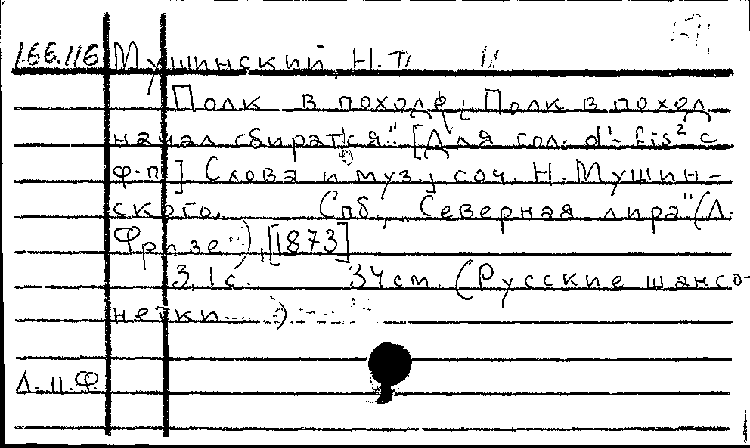 166.116 Мушинский, Н.П.
Полк в походе; „Полк в поход
начал сбиратся" [Для гол. d'-fis² с
ф-п] Слова и муз., соч. Н. Мушин-
ского. Спб., „Северная лира" (А.
Фризе), [1873]
3, 1 с. 34 см. (Русские шансо-
нетки )